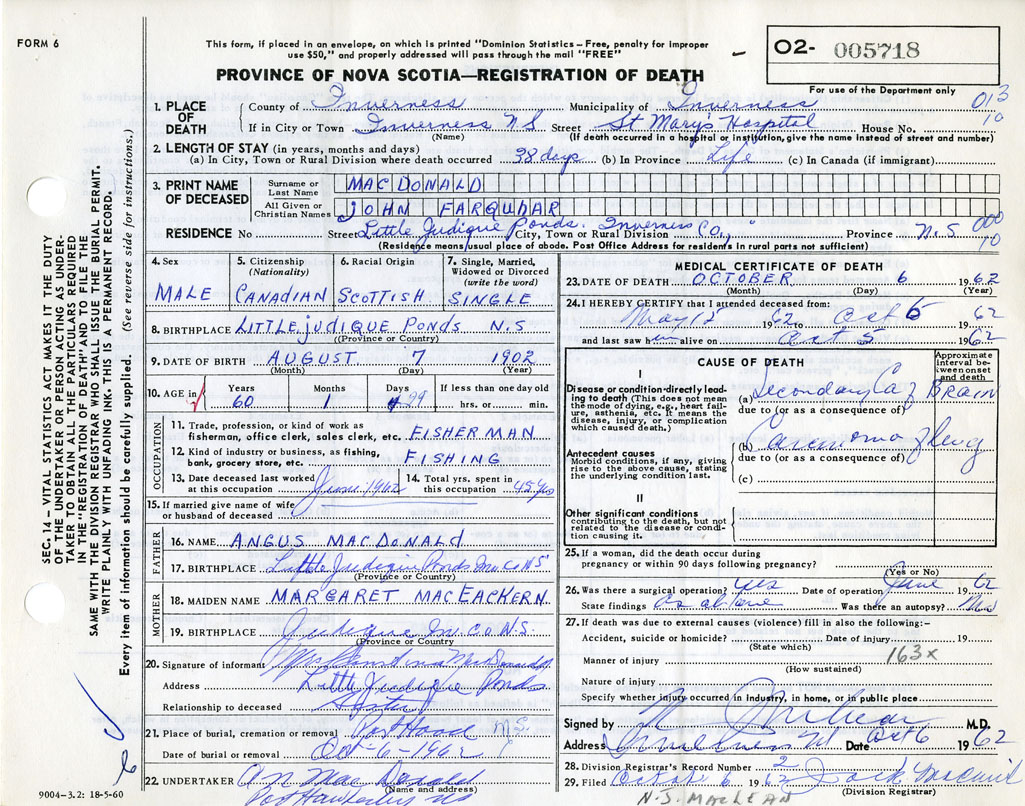 FORM 6
This form, if placed in an envelope, on which is printed "Dominion Statistics – Free, penalty for improper
use $50," and properly addressed will pass through the mail "FREE"
PROVINCE OF NOVA SCOTIA—REGISTRATION OF DEATH
O2- 005718
For use of the Department only
013
10
1. PLACE OF DEATH
County of Inverness Municipality of Inverness
If in City or Town Inverness N S Street St Mary's Hospital House No.
(Name) (If death occurred in a hospital or institution, give the name instead of street and number)
2. LENGTH OF STAY (in years, months and days)
(a) In City, Town or Rural Division where death occurred 38 days (b) In Province Life (c) In Canada (if immigrant)
3. PRINT NAME OF DECEASED
Surname or Last Name MAC DONALD
All Given or Christian Names JOHN FARQUHAR
000
10
RESIDENCE No. Street Little Judique Ponds. Inverness Co., City, Town or Rural Division Province N.S
(Residence means usual place of abode. Post Office Address for residents in rural parts not sufficient)
4. Sex MALE
5. Citizenship (Nationality) CANADIAN
6. Racial Origin SCOTTISH
7. Single, Married, Widowed or Divorced (write the word) SINGLE
8. BIRTHPLACE LITTLE JUDIQUE PONDS N.S
(Province or Country)
9. DATE OF BIRTH AUGUST 7 1902
(Month) (Day) (Year)
10. AGE in
Years 60
Months 1
Days 29
If less than one day old
hrs. or min.
OCCUPATION
11. Trade, profession, or kind of work as
fisherman, office clerk, sales clerk, etc. FISHERMAN
12. Kind of industry or business, as fishing,
bank, grocery store, etc. FISHING
13. Date deceased last worked
at this occupation June 1962
14. Total yrs. spent in
this occupation 45 yrs
15. If married give name of wife
or husband of deceased
FATHER
16. NAME ANGUS MACDONALD
17. BIRTHPLACE Little Judique Ponds Inv. Co NS
(Province or Country)
MOTHER
18. MAIDEN NAME MARGARET MACEACKERN
19. BIRTHPLACE Judique Inv. Co N.S.
(Province or Country)
20. Signature of informant Mrs MacDonald
Address Little Judique Ponds
Relationship to deceased Sister
21. Place of burial, cremation or removal Port Hood N.S.
Date of burial or removal Oct-6-1962
22. UNDERTAKER A N MacDonald
(Name and address)
Port Hawkesbury NS
MEDICAL CERTIFICATE OF DEATH
23. DATE OF DEATH OCTOBER 6 1962
(Month) (Day) (Year)
24. I HEREBY CERTIFY that I attended deceased from:
May 15 1962 to Oct 6 62
and last saw him alive on Oct 5 1962
CAUSE OF DEATH
Approximate interval between onset and death
I
Disease or condition directly leading to death (This does not mean the mode of dying, e.g., heart failure, asthenia, etc. It means the disease, injury, or complication which caused death.)
(a) Secondary Ca of BRAIN
due to (or as a consequence of)
Antecedent causes
Morbid conditions, if any, giving rise to the above cause, stating the underlying condition last.
(b) Carcinoma of lung
due to (or as a consequence of)
(c)
II
Other significant conditions
contributing to the death, but not related to the disease or condition causing it.
25. If a woman, did the death occur during
pregnancy or within 90 days following pregnancy?
(Yes or No)
26. Was there a surgical operation? yes Date of operation June 62
State findings as above Was there an autopsy? No
27. If death was due to external causes (violence) fill in also the following:-
Accident, suicide or homicide? Date of injury 19
(State which)
163x
Manner of injury
(How sustained)
Nature of injury
Specify whether injury occurred in industry, in home, or in public place
Signed by M.D.
Address Inverness Date Oct 6 1962
28. Division Registrar's Record Number 2
29. Filed October 6 1962
(Division Registrar)
N.J. MACLEAN
9004-3.2: 18-5-60
SEC. 14 – VITAL STATISTICS ACT MAKES IT THE DUTY
OF THE UNDERTAKER OR PERSON ACTING AS UNDER-
TAKER TO OBTAIN ALL THE PARTICULARS REQUIRED
IN THE "REGISTRATION OF DEATH" AND TO FILE THE
SAME WITH THE DIVISION REGISTRAR WHO SHALL ISSUE THE BURIAL PERMIT.
WRITE PLAINLY WITH UNFADING INK. THIS IS A PERMANENT RECORD.
Every item of information should be carefully supplied. (See reverse side for instructions.)